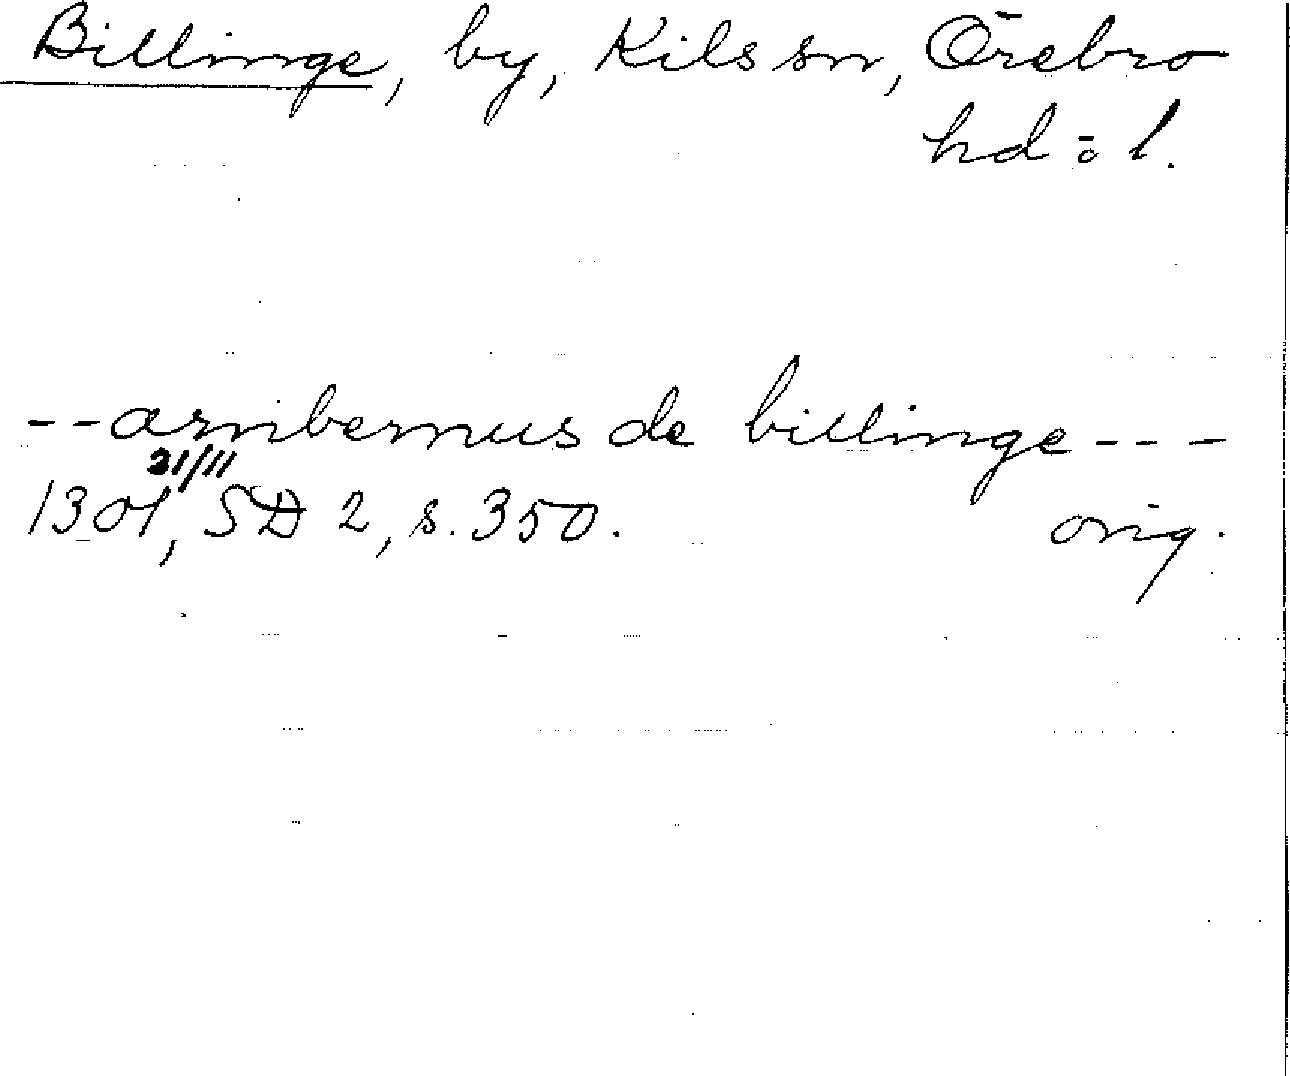 Billinge, by, Kils sn, Örebro
hd o l.
--arnbernus de billinge---
21/11
1301, SD 2, s. 350. orig.